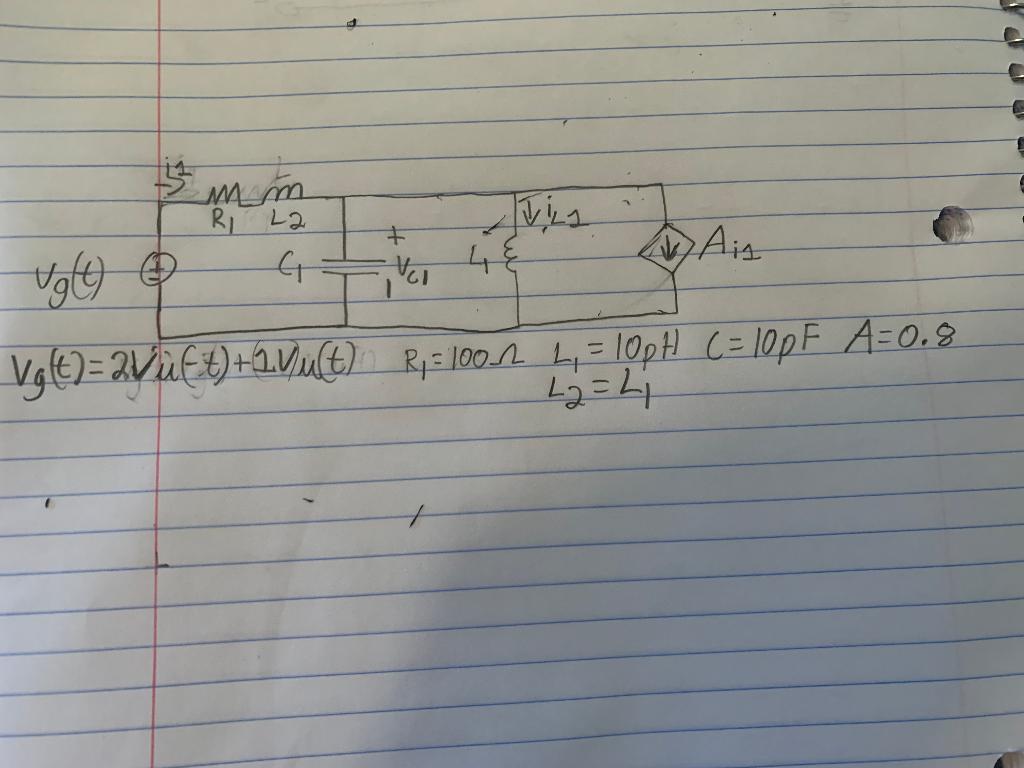 i1
R1 L2
+
↓iL1
C1
VC1
L1
Ai1
Vg(t)
Vg(t)=2Vu(-t)+(1V)u(t) R1=100Ω L1=10pH C=10pF A=0.8
L2=L1